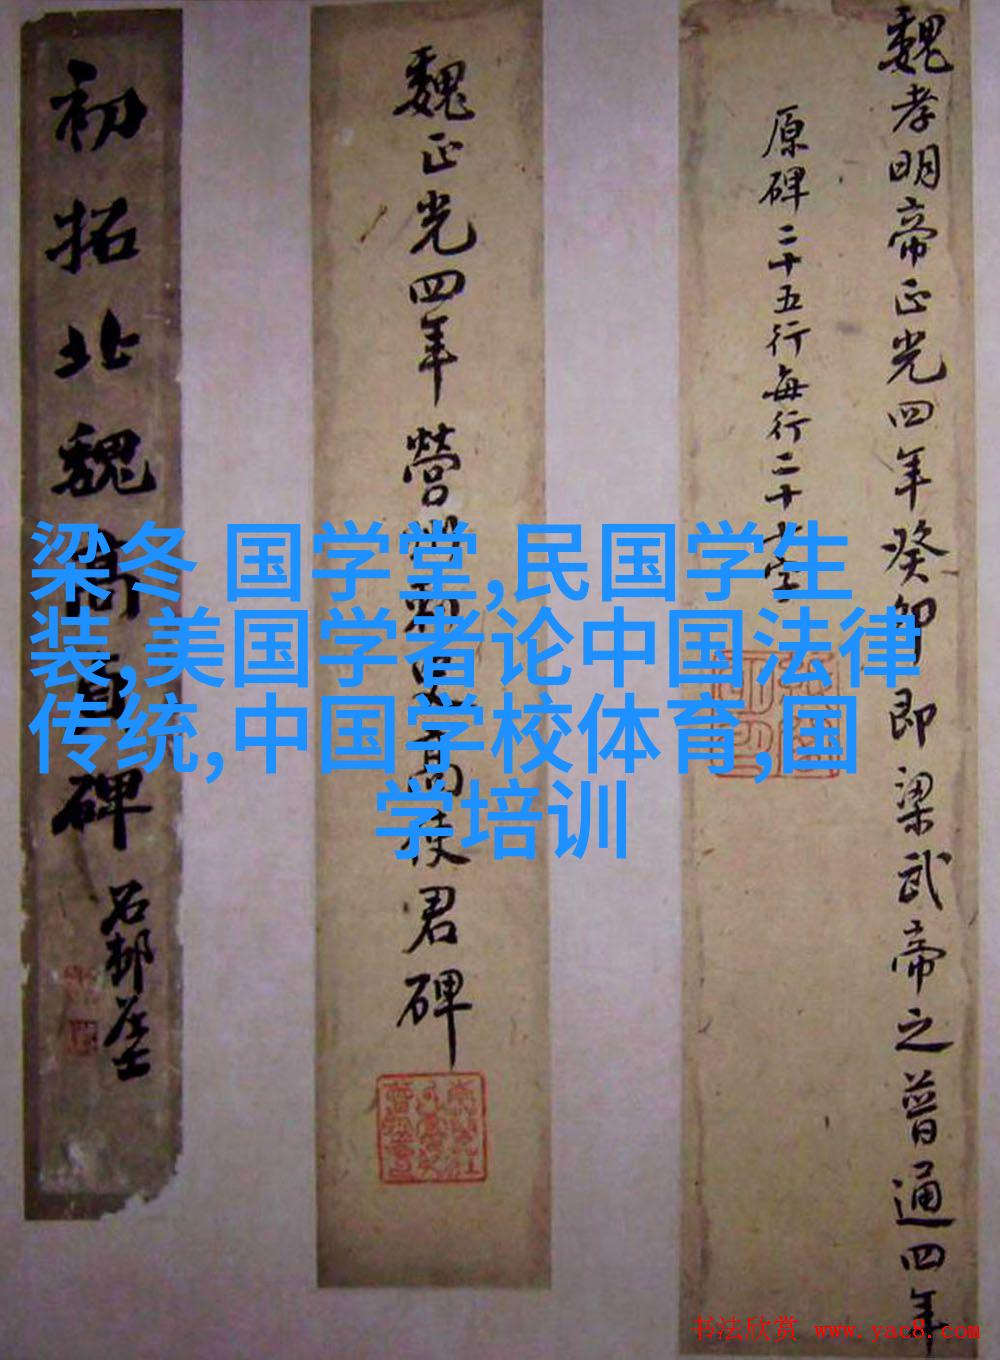 魏孝明帝正光四年癸卯即梁武帝之普通四年
原碑二十五行每行二十字
魏正光四年營州刺史高使君碑
初拓北魏高貞碑
石邨居士
梁冬 国学堂,民国学生
装,美国学者论中国法律
传统,中国学校体育,国
学培训
书法欣赏 www.yac8.com